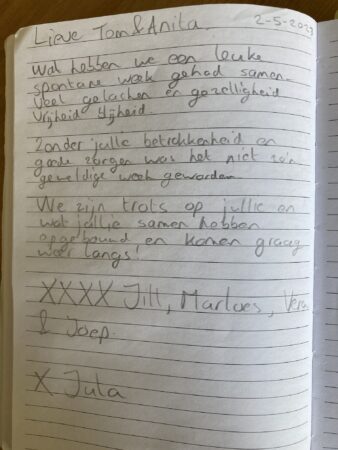 Lieve Tom & Anita. 2-5-2023
Wat hebben we een leuke
spontane week gehad samen.
Veel gelachen en gezelligheid
Vrijheid Blijheid.
Zonder jullie betrokkenheid en
goede zorgen was het niet zo'n
geweldige week geworden.
We zijn trots op jullie en
wat jullie samen hebben
opgebouwd en komen graag
weer langs!
XXXX Jill, Marloes, Vera
& Joep.
X Juta